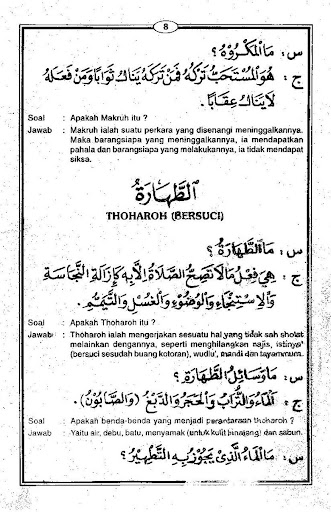 8
س : مَا الْمَكْرُوْهُ ؟
ج : هُوَ الْمُسْتَحَبُّ تَرْكُهُ فَمَنْ تَرَكَهُ يَنَالُ ثَوَابًا وَمَنْ فَعَلَهُ
لَا يَنَالُ عِقَابًا.
Soal : Apakah Makruh itu ?
Jawab : Makruh ialah suatu perkara yang disenangi meninggalkannya.
Maka barangsiapa yang meninggalkannya, ia mendapatkan
pahala dan barangsiapa yang melakukannya, ia tidak mendapat
siksa.
اَلطَّهَارَةُ
THOHAROH (BERSUCI)
س : مَا الطَّهَارَةُ ؟
ج : هِيَ فِعْلُ مَا لَا تَصِحُّ الصَّلَاةُ إِلَّا بِهِ كَإِزَالَةِ النَّجَاسَةِ
وَالْاِسْتِنْجَاءِ وَالْوُضُوْءِ وَالْغُسْلِ وَالتَّيَمُّمِ.
Soal : Apakah Thoharoh itu ?
Jawab : Thoharoh ialah mengerjakan sesuatu hal yang tidak sah sholat
melainkan dengannya, seperti menghilangkan najis, istinja'
(bersuci sesudah buang kotoran), wudlu', mandi dan tayammum.
س : مَا وَسَائِلُ الطَّهَارَةِ ؟
ج : اَلْمَاءُ وَالتُّرَابُ وَالْحَجَرُ وَالدَّبْغُ (وَالصَّابُوْنُ).
Soal : Apakah benda-benda yang menjadi perantaraan thoharoh ?
Jawab : Yaitu air, debu, batu, menyamak (untuk kulit binatang) dan sabun.
س : مَا الْمَاءُ الَّذِيْ يَجُوْزُ بِهِ التَّطْهِيْرُ ؟